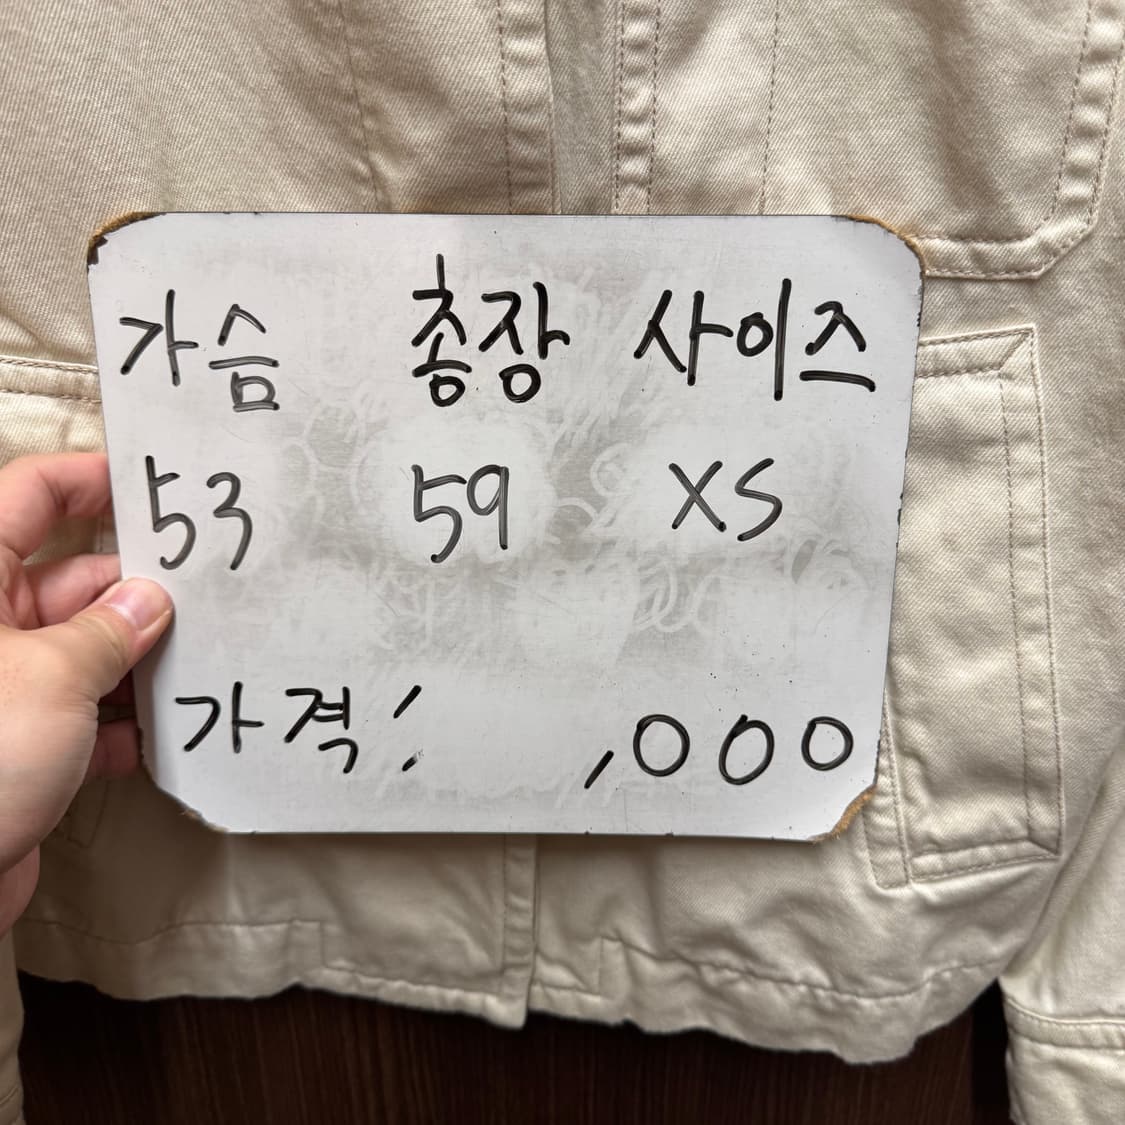 가슴 총장 사이즈
53 59 XS
가격: ,000